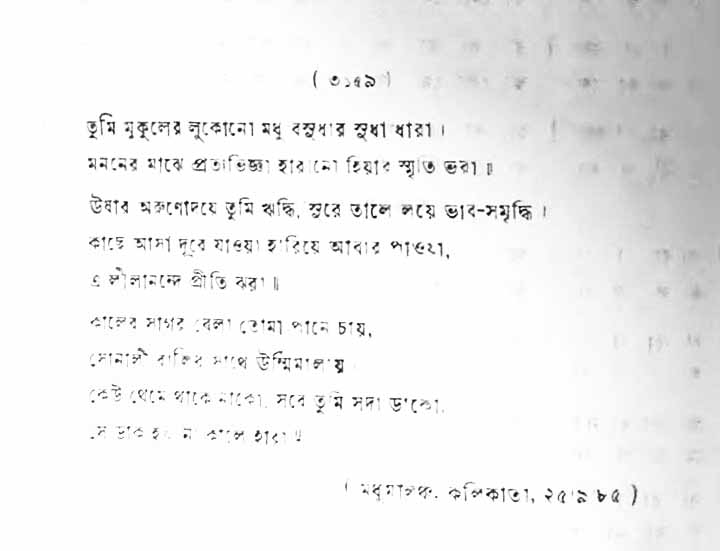 ( ৩১৫৯ )
তুমি মুকুলের লুকোনো মধু বসুধার সুধা ধারা ।
মননের মাঝে প্রত্যভিজ্ঞা হারানো হিয়ার স্মৃতি ভরা ॥
ঊষার অরুণোদয়ে তুমি ঋদ্ধি, সুরে তালে লয়ে ভাব-সমৃদ্ধি ।
কাছে আসা দূরে যাওয়া হারিয়ে আবার পাওয়া,
এ লীলানন্দে প্রীতি ঝরা ॥
কালের সাগর বেলা তোমা পানে চায়,
সোনালী বালির সাথে উর্ম্মিমালায় ।
কেউ থেমে থাকে নাকো, সবে তুমি সদা ডাকো,
সে ডাক হয় না কালে হারা ॥
( মধুমালঞ্চ, কলিকাতা, ২৫।৯।৮৫ )